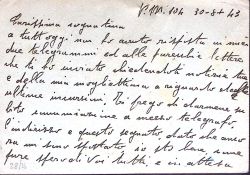 P.M. 104 30-8-43
Carissima cognatina
a tutt'oggi non ho avuto risposta in merito
due telegrammi ed alle parecchie lettere
che ti ho inviato chiedendoti notizie tue
e della mia mogliettina a riguardo delle
ultime incursioni. Ti prego di darmene su
bito comunicazione a mezzo telegrafo
l'indirizzo e questo segnato dato che anco
ra mi sono spostato. Io sto bene, sono
pure spero di voi tutti e in attesa